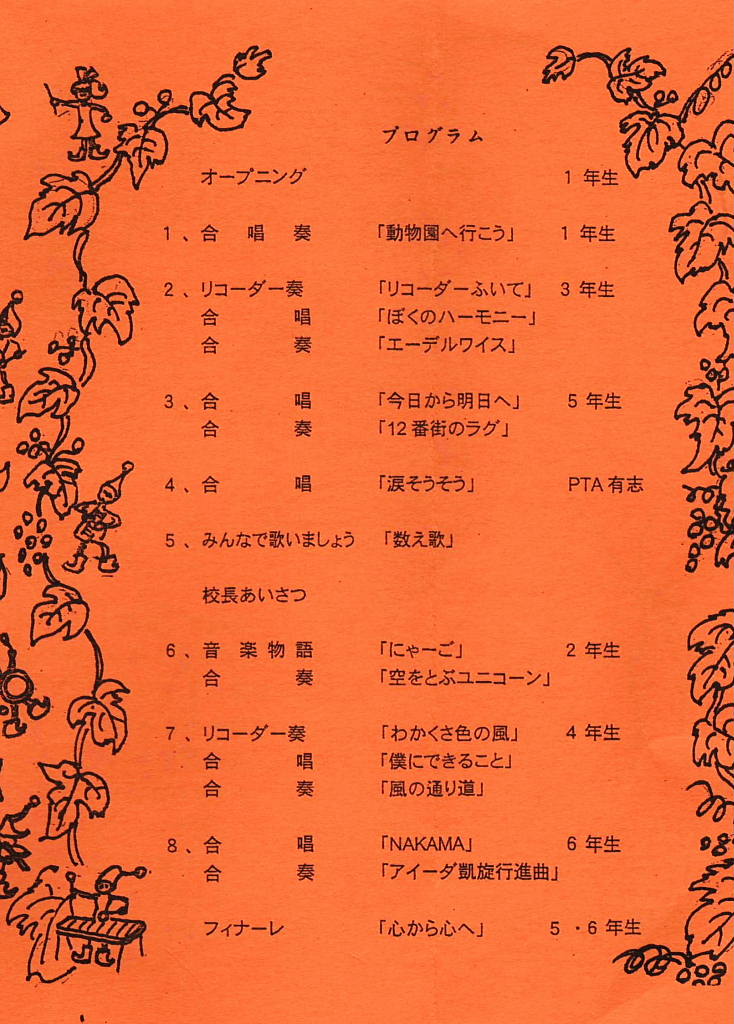 プログラム
オープニング 1年生
1、合唱奏 「動物園へ行こう」 1年生
2、リコーダー奏 「リコーダーふいて」 3年生
合唱 「ぼくのハーモニー」
合奏 「エーデルワイス」
3、合唱 「今日から明日へ」 5年生
合奏 「12番街のラグ」
4、合唱 「涙そうそう」 PTA有志
5、みんなで歌いましょう 「数え歌」
校長あいさつ
6、音楽物語 「にゃーご」 2年生
合奏 「空をとぶユニコーン」
7、リコーダー奏 「わかくさ色の風」 4年生
合唱 「僕にできること」
合奏 「風の通り道」
8、合唱 「NAKAMA」 6年生
合奏 「アイーダ凱旋行進曲」
フィナーレ 「心から心へ」 5・6年生